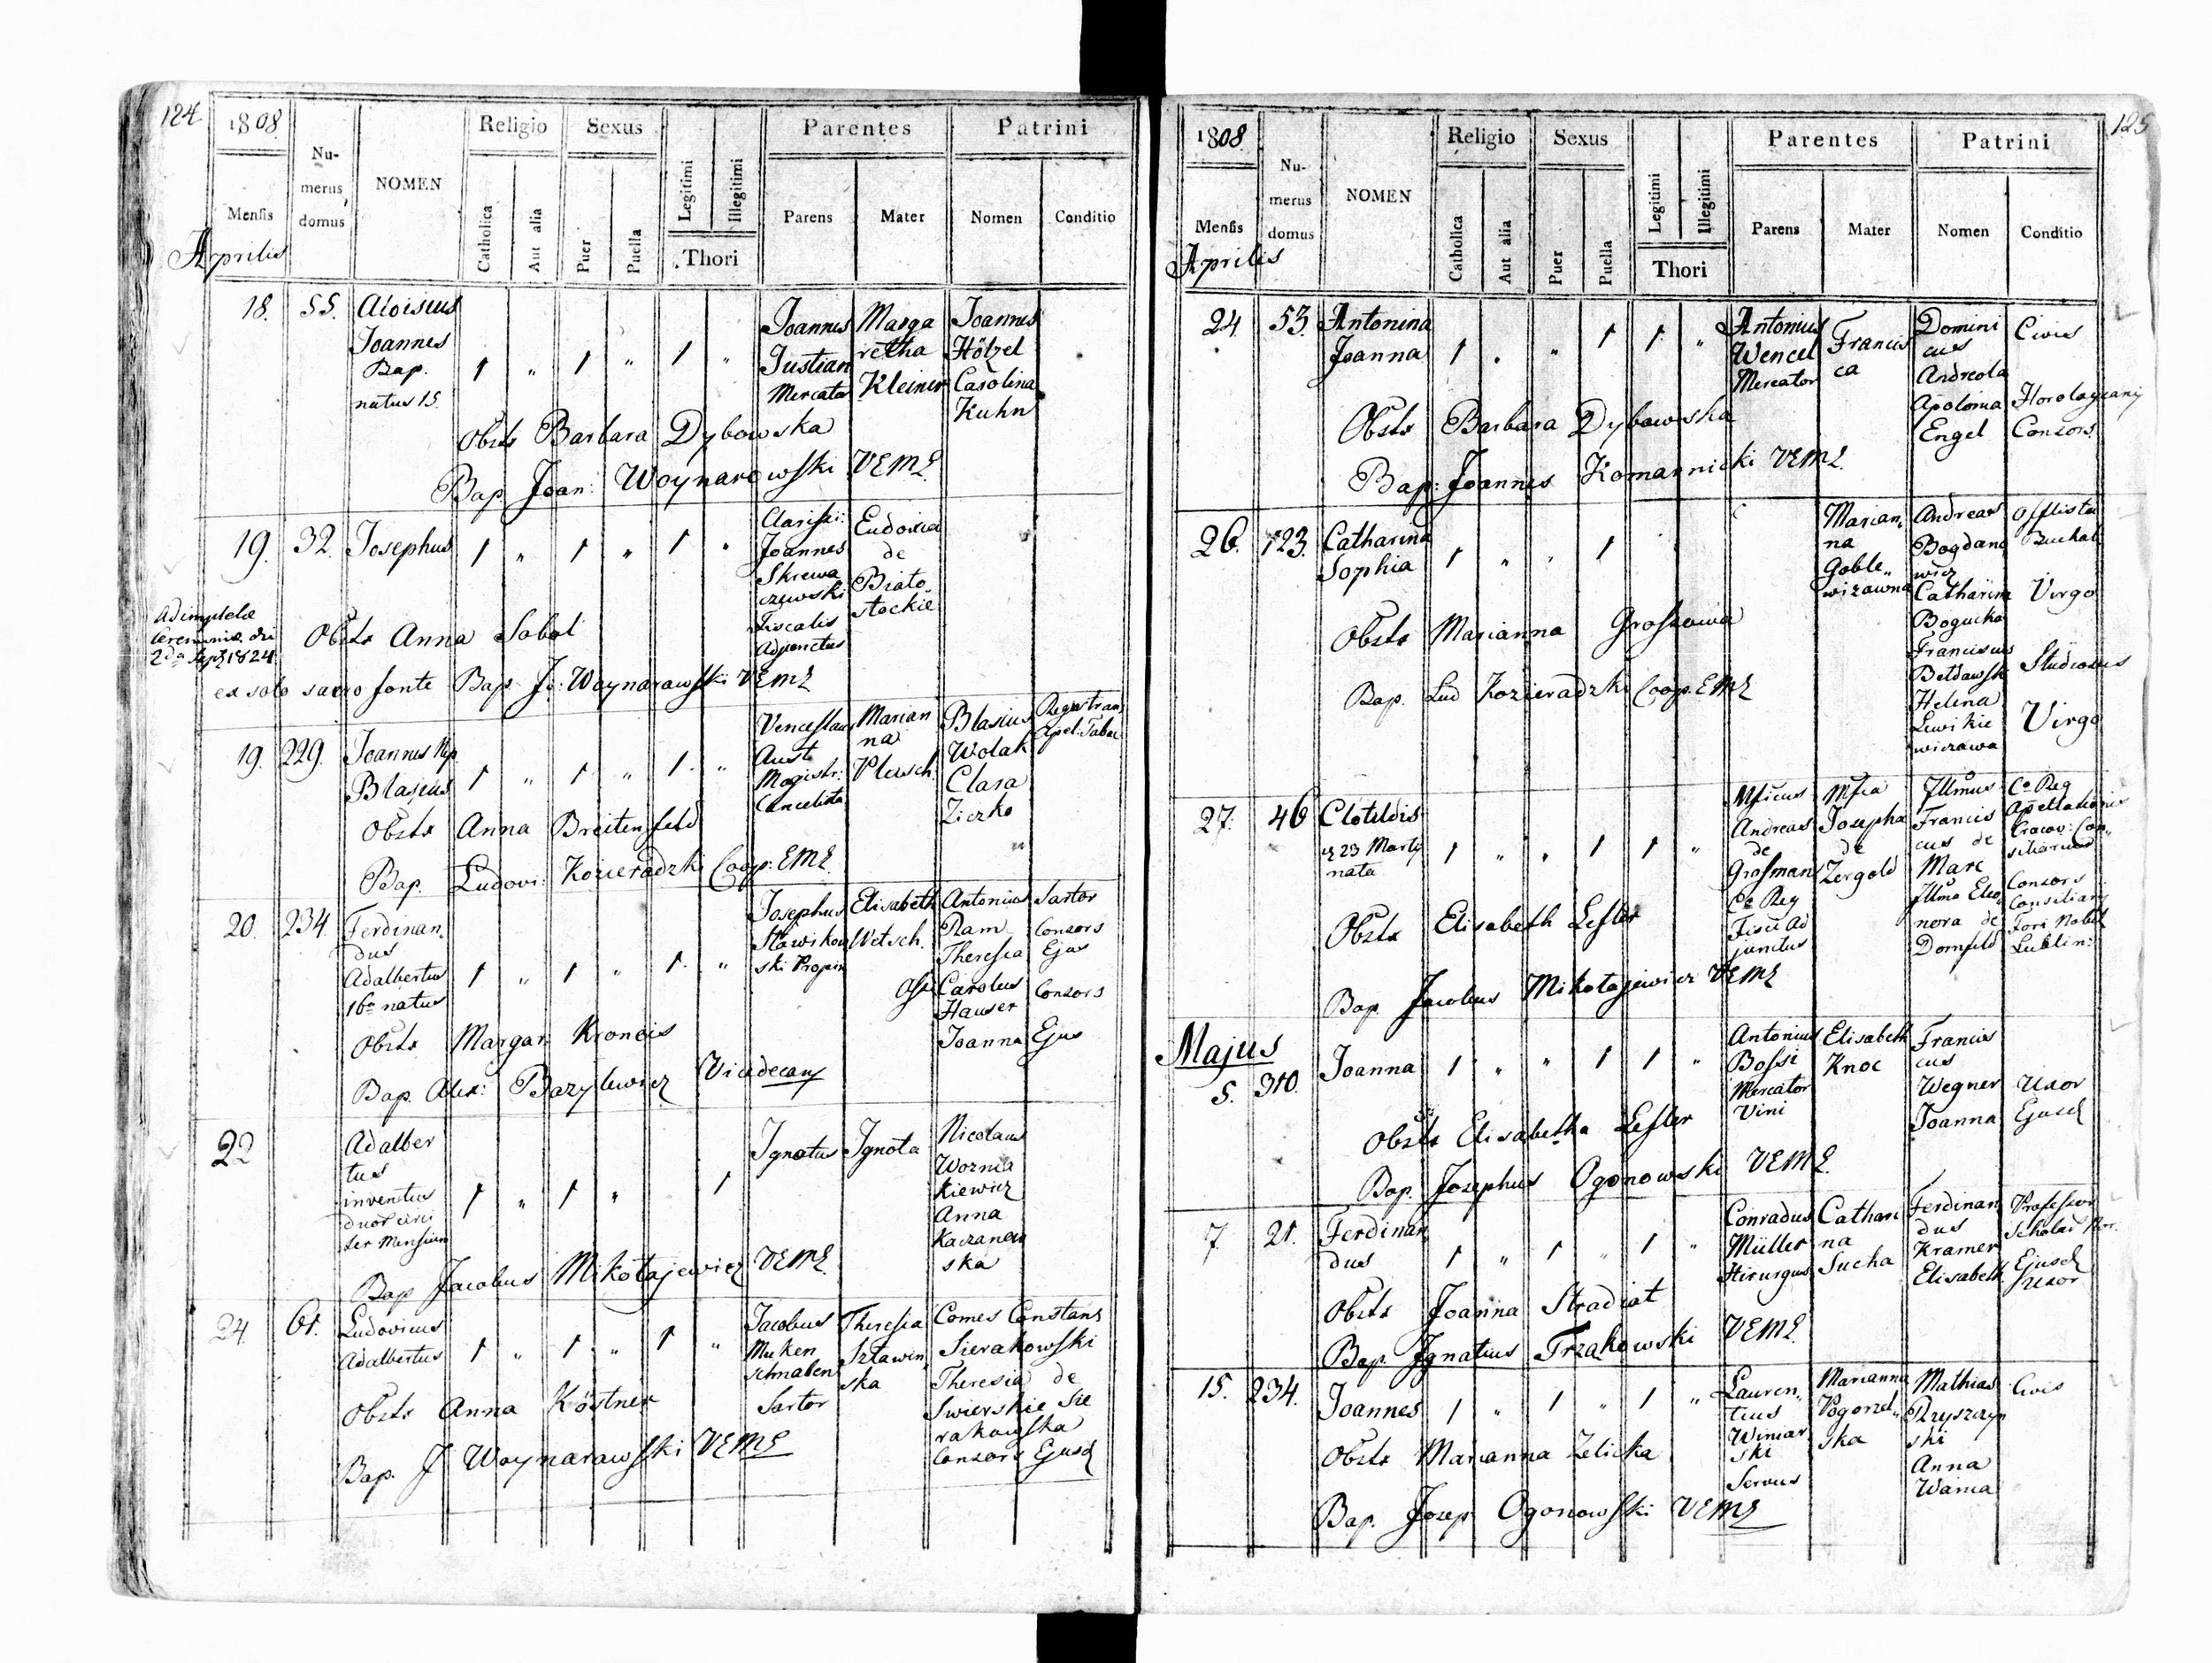 124
1808
Numerus domus
NOMEN
Religio
Sexus
Legitimi
Illegitimi
Parentes
Patrini
Mensis
Catholica
Aut alia
Puer
Puella
Thori
Parens
Mater
Nomen
Conditio
Aprilis
18. 55. Aloisius Joannes Bap. natus 15.
1 " 1 " 1 "
Joannes Justian Mercator
Margaretha Kleiner
Joannes Hötzel
Carolina Kuhn
Obstx Barbara Dybowska
Bap. Joan: Woynarowski VEML
19. 32. Josephus
1 " 1 " 1 "
Joannes Skrewaczewski Fiscalis Adjunctus
Eudoxia de
Adimpletæ
2da Sept 1824
Obstx Anna Sobol
ex solo sacro fonte Bap. Jo: Woynarawski VEML
19. 229. Joannes Nep Blasius
1 " 1 " 1 "
Venceslaus Magistr: Cancelista
Marianna Plusch.
Blasius Wolak
Clara Ziczko
Obstx Anna Breitenfeld
Bap. Ludovi: Kozieradzki Coop: EML
20. 234. Ferdinandus Adalbertus 16a natus
1 " 1 " 1 "
Josephus Stawikowski Propin
Elisabeth Wetsch.
Antonius Ram Sartor
Theresia Consors Ejus
Carolus Hauser
Joanna Consors Ejus
Obstx Margar: Kroneis
Bap. Alex: Bazylewicz Vicedecany
22
Adalbertus inventus duor circiter Mensium
1 " 1 " 1
Ignotus
Ignota
Nicolaus Wozniakiewicz
Anna Kaczanowska
Bap Jacobus Mikołajewicz VEML
24. 61. Ludovicus Adalbertus
1 " 1 " 1 "
Jacobus Mukenschnabem Sartor
Theresia Sztawinska
Comes Constans Sierakowski
Theresia de Swierskie Sierakowska Consors Ejusd
Obstx Anna Köstner
Bap. J Woynarawski VEML
125
1808.
Numerus domus
NOMEN
Religio
Sexus
Legitimi
Illegitimi
Parentes
Patrini
Mensis
Catholica
Aut alia
Puer
Puella
Thori
Parens
Mater
Nomen
Conditio
Aprilis
24. 53. Antonina Joanna
1 " " 1 1 "
Antonius Wencel Mercator
Francisca
Dominicus Andreola Civis
Apolonia Engel Consors
Obstx Barbara Dybowska
Bap: Joannes Komarnicki VEML
26. 123. Catharina Sophia
1 " " 1
Marianna Goblewizawna
Andreas Bogdanowicz Offlista Buchal
Catharina Bogucka Virgo
Franciscus Studiosus
Helena Lewikiewiczawa Virgo
Obstx Marianna Groszowa
Bap. Lud Kozieradzki Coop. EML
27. 46 Clotildis nata
1 " " 1 1 "
Andreas de Grosman Cæ Reg Fisci Adjunctus
Josepha de Zergold
Illmus Franciscus de Marc
Cæ Reg Apellationis Cracov: Consiliarius
Illma Eleonora de Dornfeld
Consors Consiliarij Fori Nobil Lublin:
Obstx Elisabeth Lesler
Bap. Jacobus Mikołajewicz VEML
Majus
5. 310. Joanna
1 " " 1 1 "
Antonius Bossi Mercator Vini
Elisabeth Knoc
Franciscus Wegner
Joanna Uxor Ejusd
Obstx Elisabetha Lesler
Bap. Josephus Ogonowski VEML
7 21. Ferdinandus
1 " 1 " 1 "
Conradus Müller Hirurgus
Catharina Sucha
Ferdinandus Kramer Professor Scholar Nor.
Elisabeth Ejusd Uxor
Obstx Joanna Stradiat
Bap. Ignatius Trzakowski VEML
15. 234. Joannes
1 " 1 " 1 "
Laurentius Winiarski Servus
Marianna Pogorzelska
Mathias Przyszczypski Civis
Anna Wania
Obstx Marianna Zelicka
Bap. Josep. Ogonowski VEML